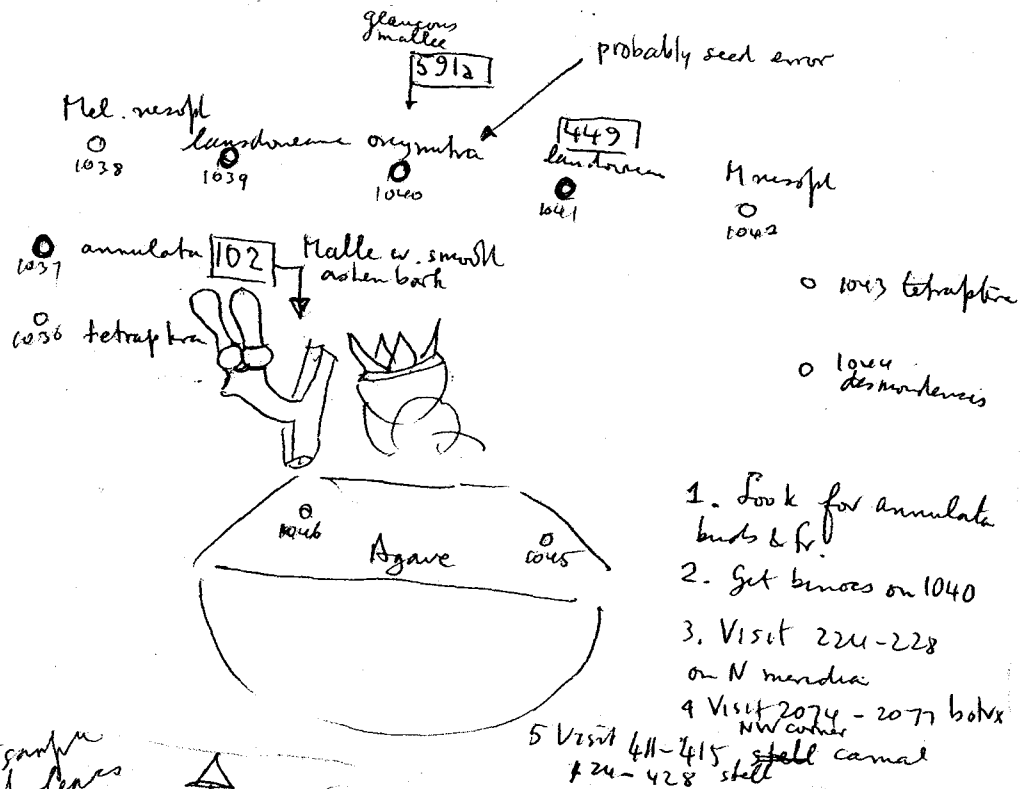 glaucous
mallee
591a
probably seed error
Mel. nesopl
1038
lansdowneana
1039
oxymitra
1040
449
landownean
1041
M nesopl
1042
1037 annulata
102
Malle w. smooth
ashen bark
1036 tetraptera
1043 tetraptera
1044
desmondensis
1046
Agave
1045
1. Look for annulata
buds & fr.
2. Get binocs on 1040
3. Visit 224-228
on N meridia
4 Visit 2074 - 2077 botrx
NW corner
5 Visit 411-415 stell carnal
424-428 stell